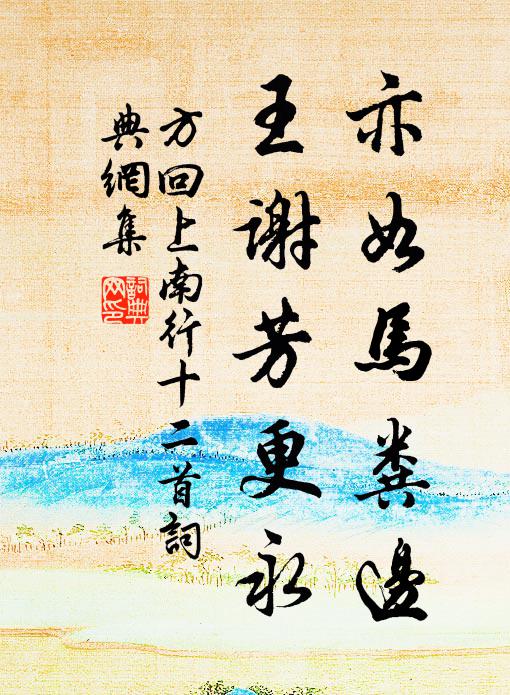 亦如馬糞邊
王謝芳更永
方回上南行十二首詞
典網集
詞典
网印